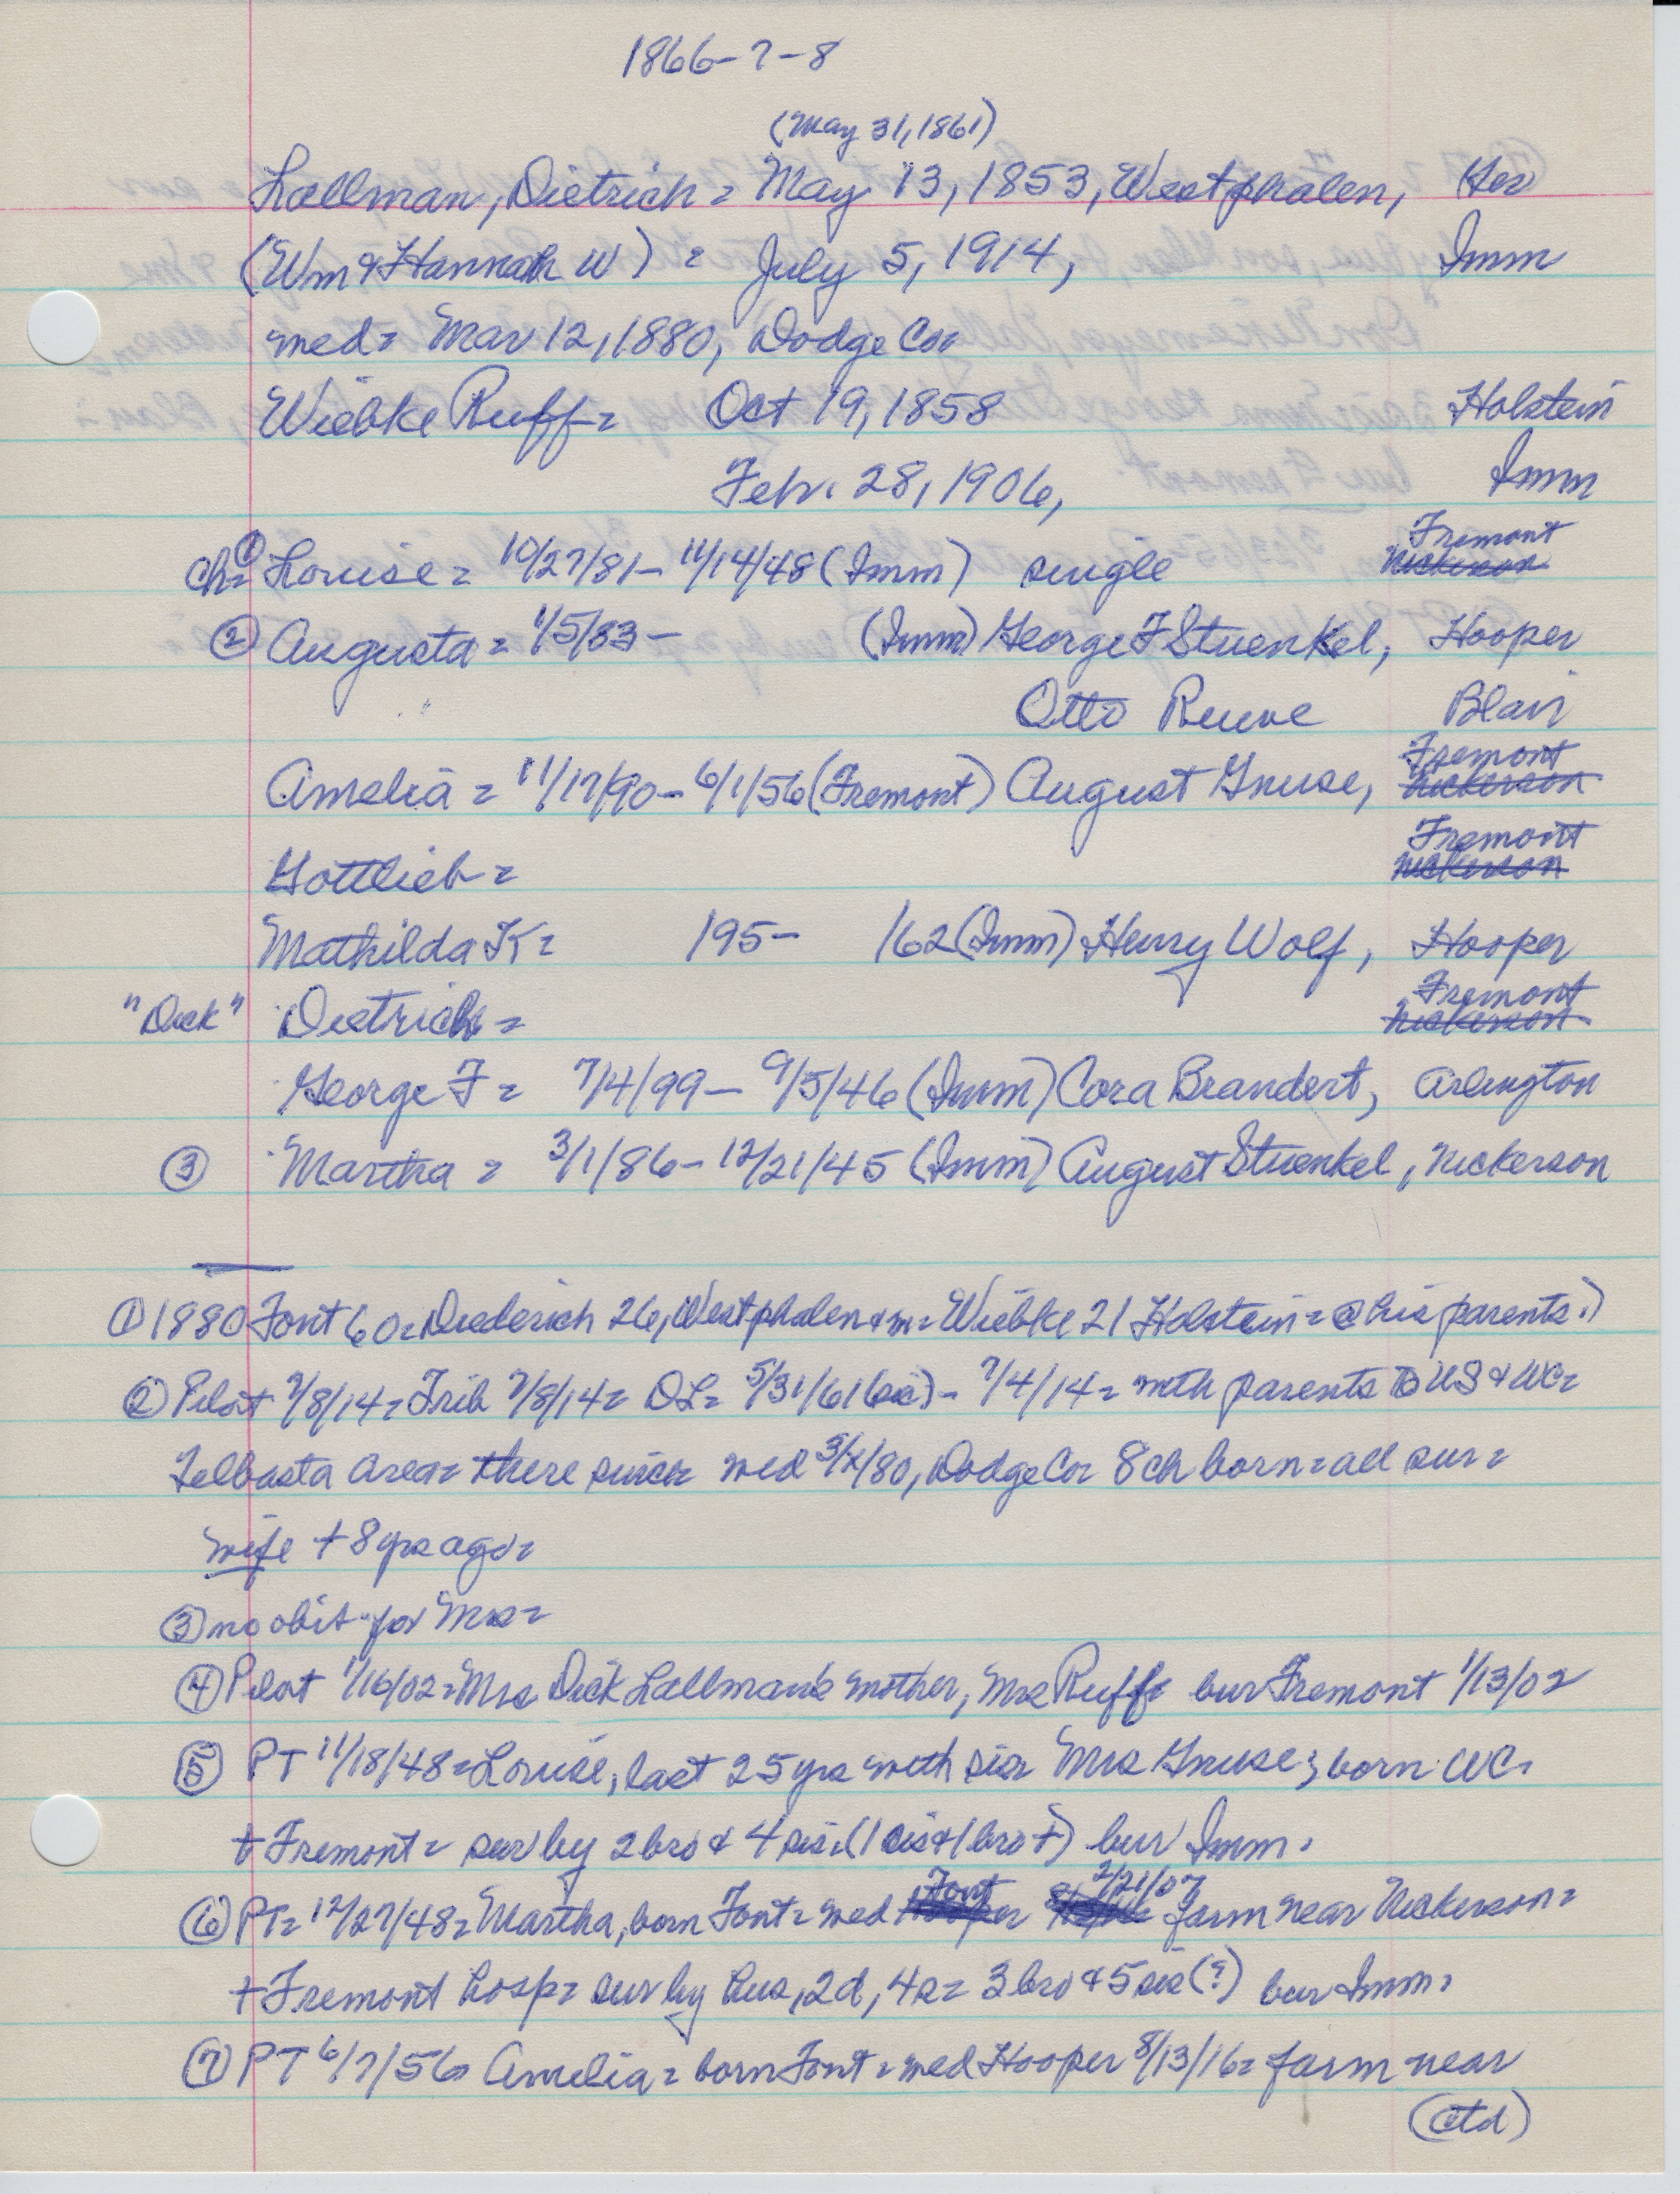 1866-7-8
(May 31, 1861)
Lallman, Dietrich = May 13, 1853, Westphalen, Her
(Wm & Hannah W) = July 5, 1914, Imm
med = Mar 12, 1880, Dodge Co =
Wiebke Ruff = Oct 19, 1858 Holstein
Feb. 28, 1906, Imm
Fremont
ch = ① Louise = 10/27/81 - 11/14/48 (Imm) single Nickerson
② Augusta = 1/5/83 - (Imm) George F Stuenkel, Hooper
Otto Ruwe Blair
Fremont
Amelia = 11/17/90 - 6/1/56 (Fremont) August Gnuse, Nickerson
Fremont
Gottlieb = Nickerson
Mathilda K = 195- 162 (Imm) Henry Wolf, Hooper
Fremont
"Dick" Dietrich = Nickerson
George F = 7/4/99 - 9/5/46 (Imm) Cora Brandert, Arlington
③ Martha = 3/1/86 - 12/21/45 (Imm) August Stuenkel, Nickerson
① 1880 Font 60 = Diederich 26, Westphalen & m = Wiebke 21 Holstein = @ his parents.)
② Pilot 7/8/14 = Trib 7/8/14 = DL = 5/31/61 (sic) - 7/4/14 = with parents to US & WC =
Telbasta area = there since = med 3/12/80, Dodge Co = 8 ch born = all sur =
wife + 8 yrs ago =
③ no obit for Mrs =
④ Pilot 1/16/02 = Mrs Dick Lallman's mother, Mrs Ruff = bur Fremont 1/13/02
⑤ PT 11/18/48 = Louise, last 25 yrs with sis = Mrs Gnuse; born WC =
+ Fremont = sur by 2 bro & 4 sis = (1 sis & 1 bro +) bur Imm.
Font 2/21/07
⑥ PT = 12/27/48 = Martha, born Font = med Hooper farm near Nickerson =
+ Fremont hosp = sur by hus, 2d, 4s = 3 bro & 5 sis (?) bur Imm.
⑦ PT 6/7/56 = Amelia = born Font = med Hooper 8/13/16 = farm near
(ctd)